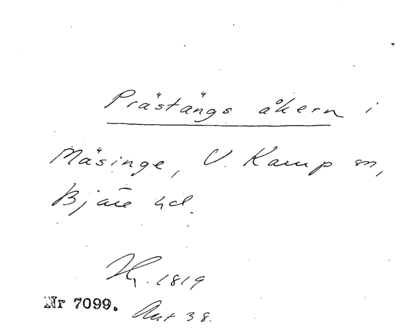 Prästängs åkern i
Mäsinge, V. Karup sn,
Bjäre hd.
1819
Nr 7099. Akt 38.